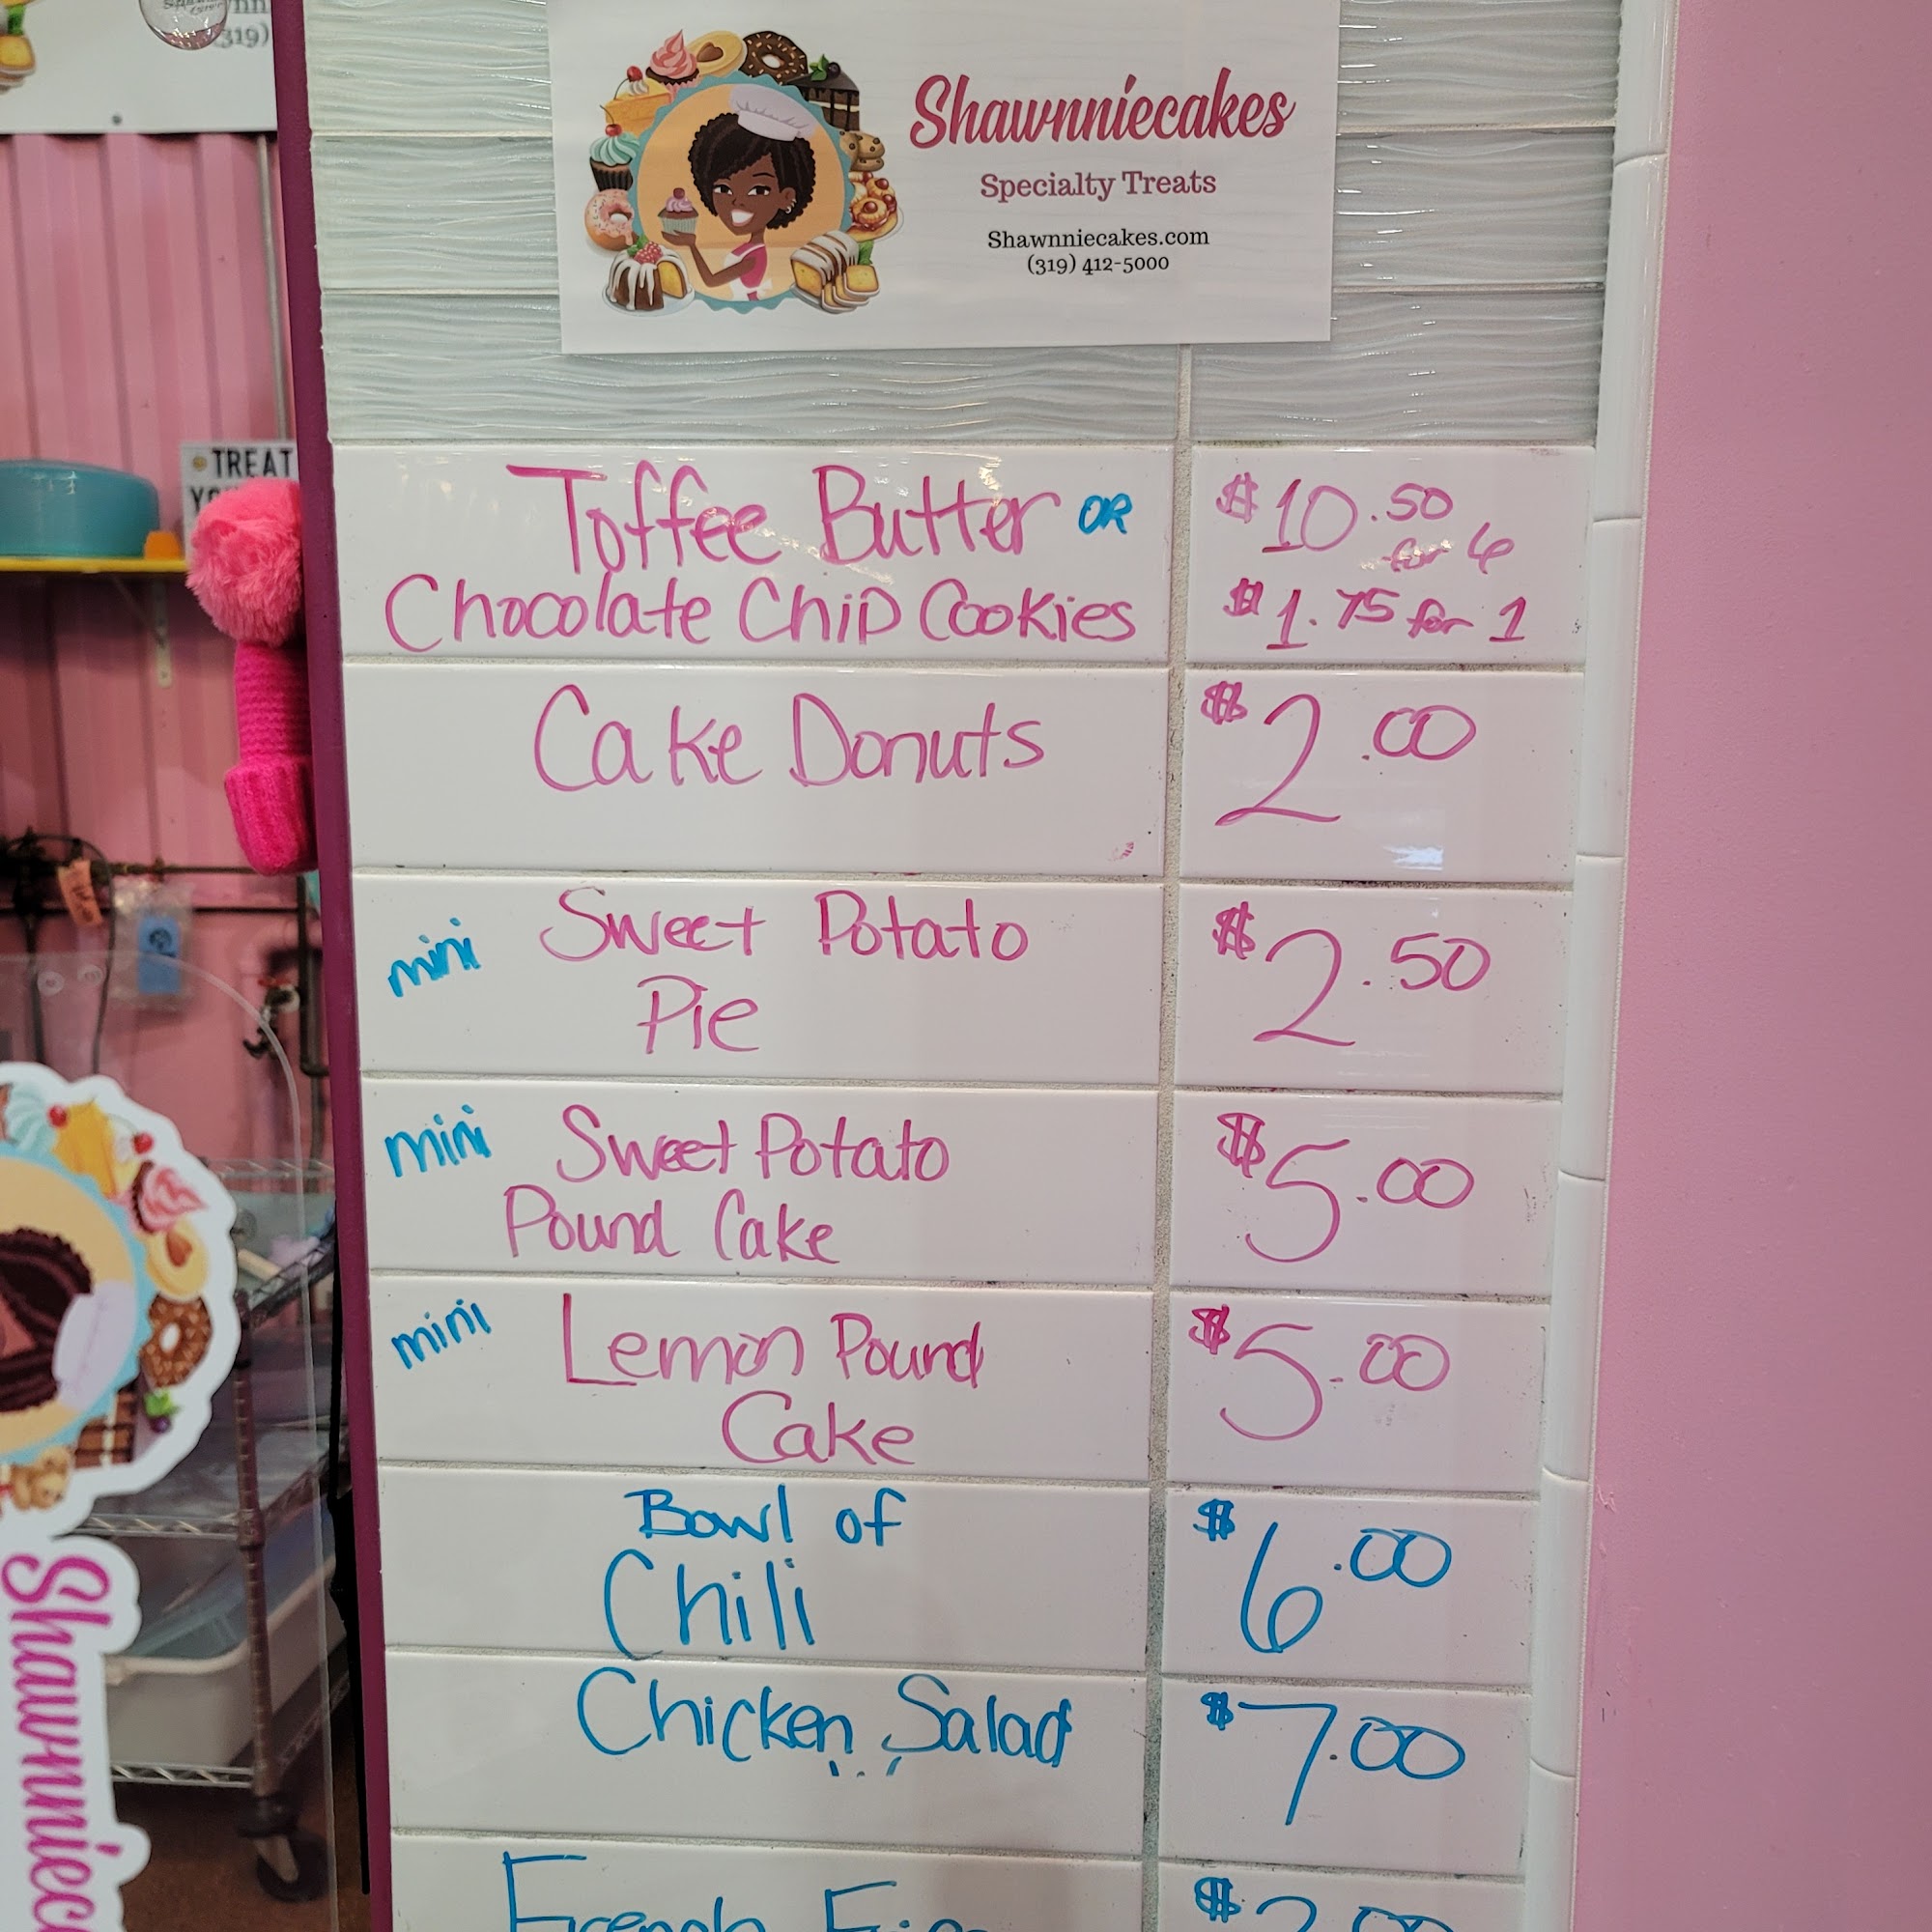 (319)
Shawnniecakes
Specialty Treats
Shawnniecakes.com
(319) 412-5000
TREAT
Toffee Butter OR
Chocolate Chip Cookies
$10.50
for 6
$1.75 for 1
Cake Donuts
$2.00
mini Sweet Potato
Pie
$2.50
mini Sweet Potato
Pound Cake
$5.00
mini Lemon Pound
Cake
$5.00
Bowl of
Chili
$6.00
Chicken Salad
$7.00
French
Shawnniec